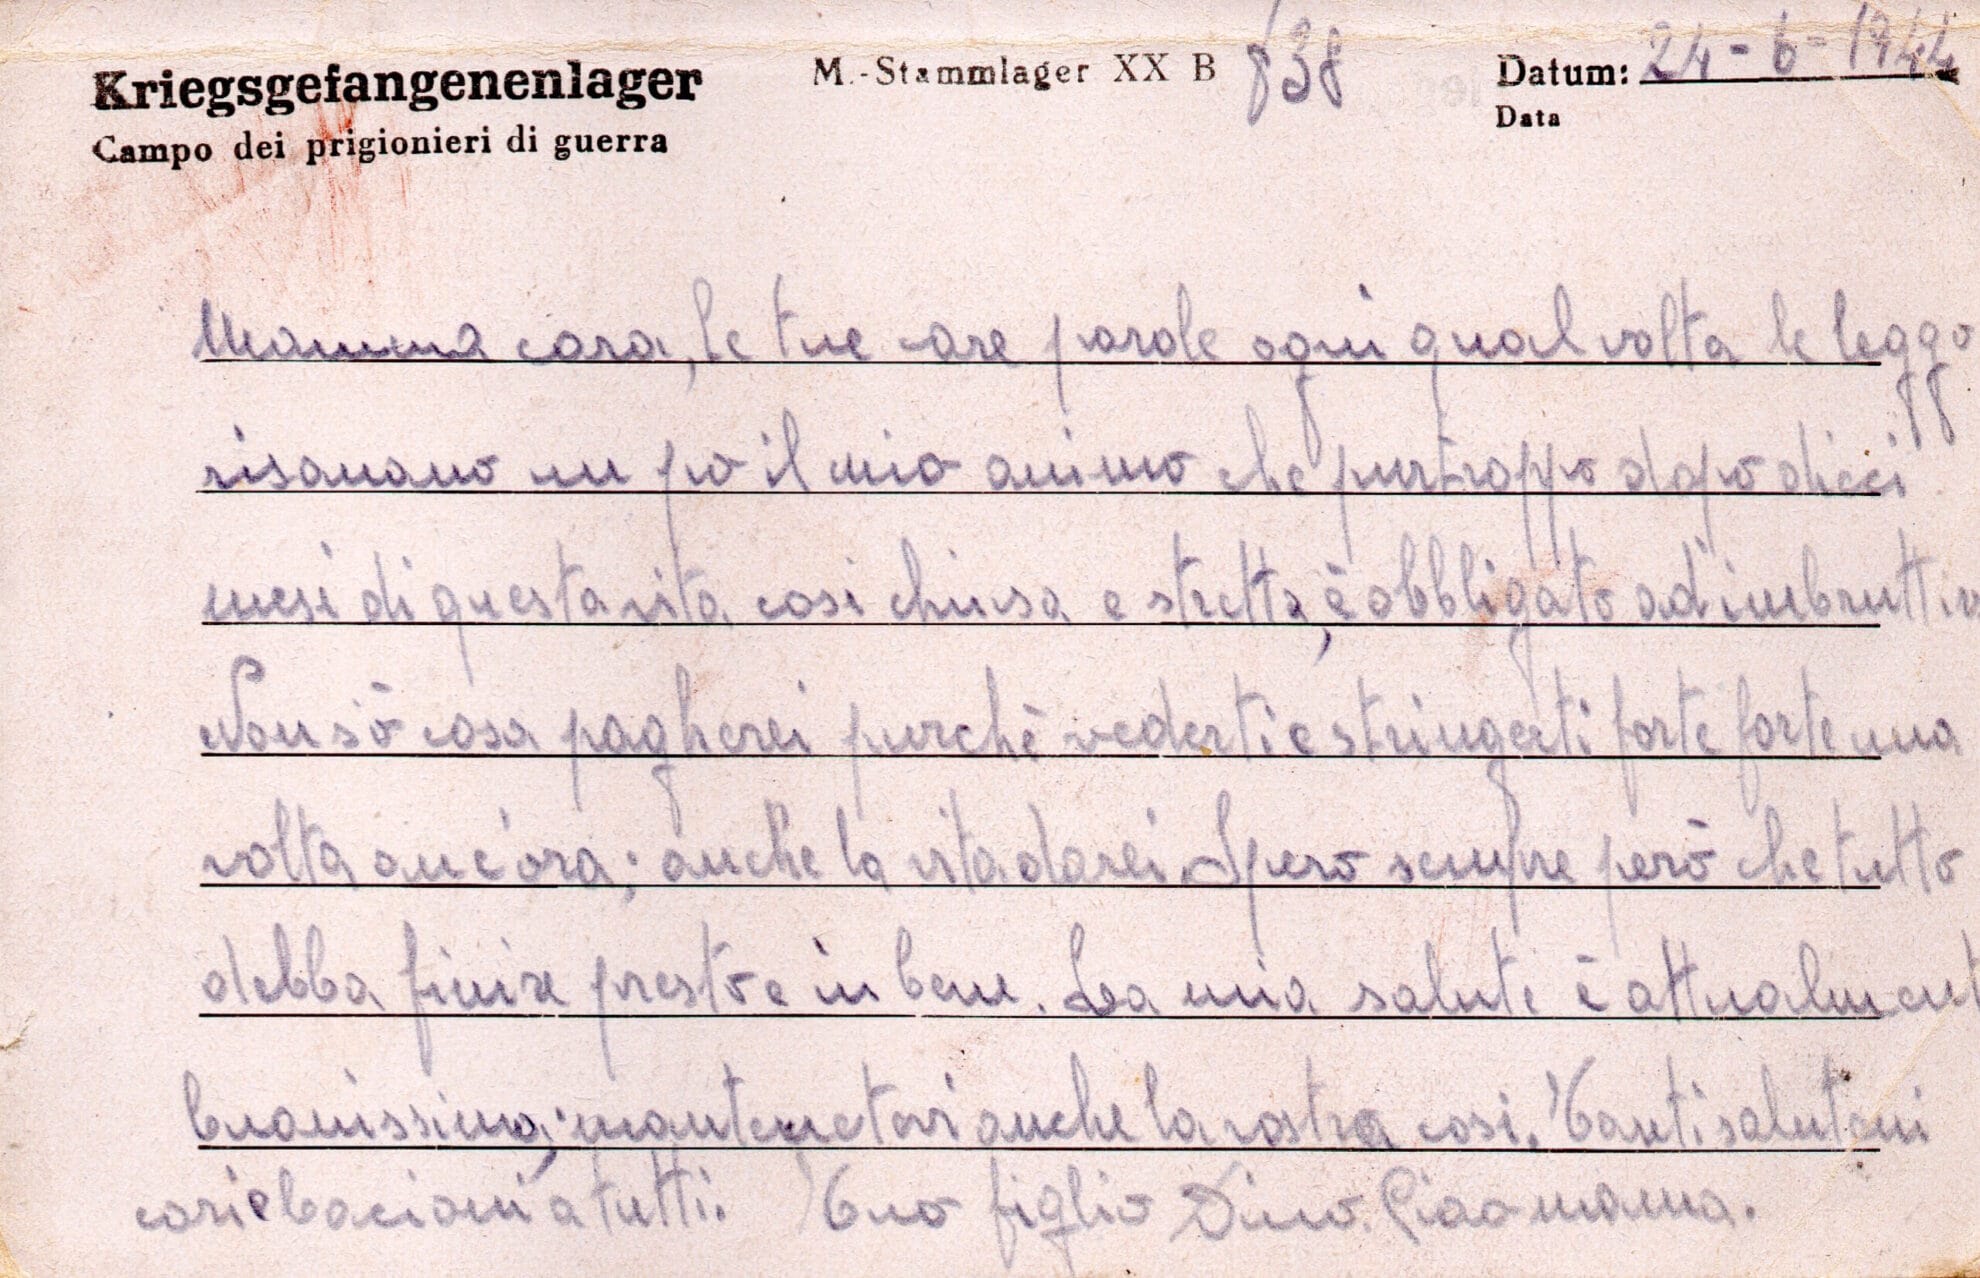 Kriegsgefangenenlager M.-Stammlager XX B 838 Datum: 24-6-1944
Campo dei prigionieri di guerra Data
Mamma cara, le tue care parole ogni qual volta le leggo
risanano un po il mio animo che purtroppo dopo dieci
mesi di questa vita cosi chiusa e stretta, è obbligato ad
Non sò cosa pagherei purchè vederti e stringerti forte forte una
volta ancora; anche la vita darei. Spero sempre però che tutto
debba finire presto e in bene. La mia salute è attualment
buonissima; mantenetevi anche la vostra cosi. Tanti salutoni
cari e bacioni a tutti. Tuo figlio Dino. Ciao mama.